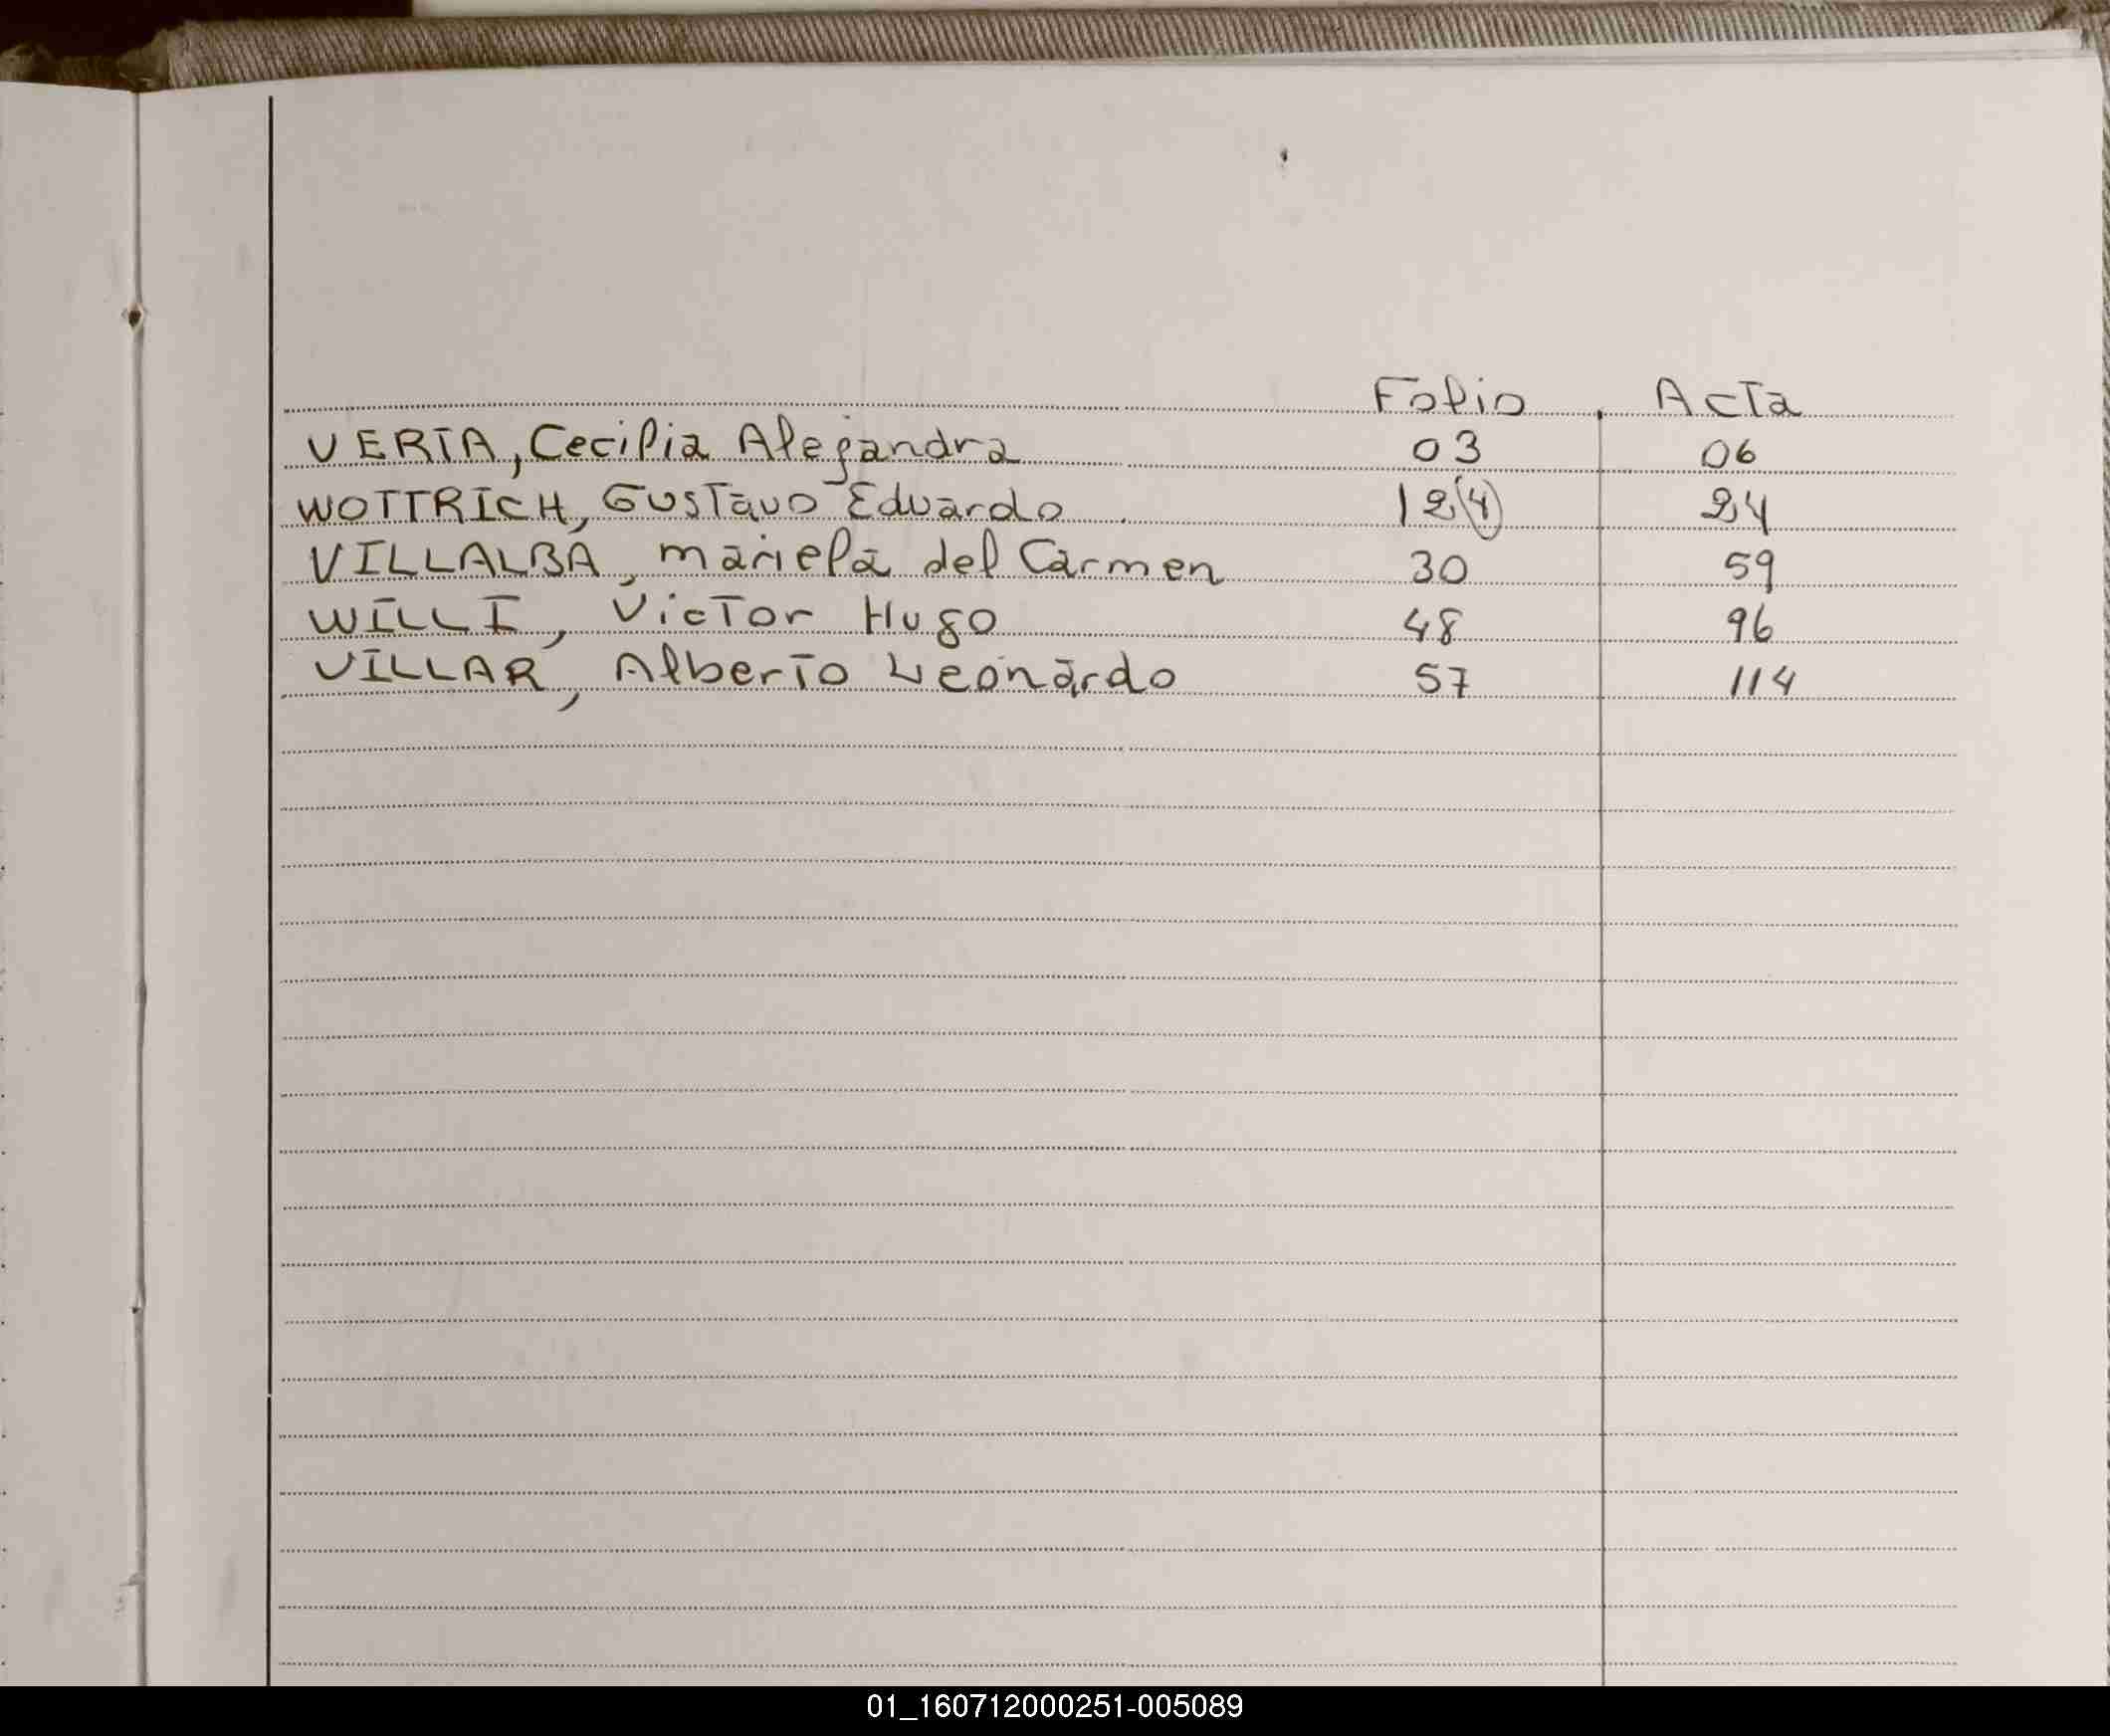 Folio Acta
VERTA, Cecilia Alejandra 03 06
WOTTRICH, Gustavo Eduardo 12(4) 24
VILLALBA, mariela del Carmen 30 59
WILLI, Victor Hugo 48 96
VILLAR, Alberto Leonardo 57 114
01_160712000251-005089